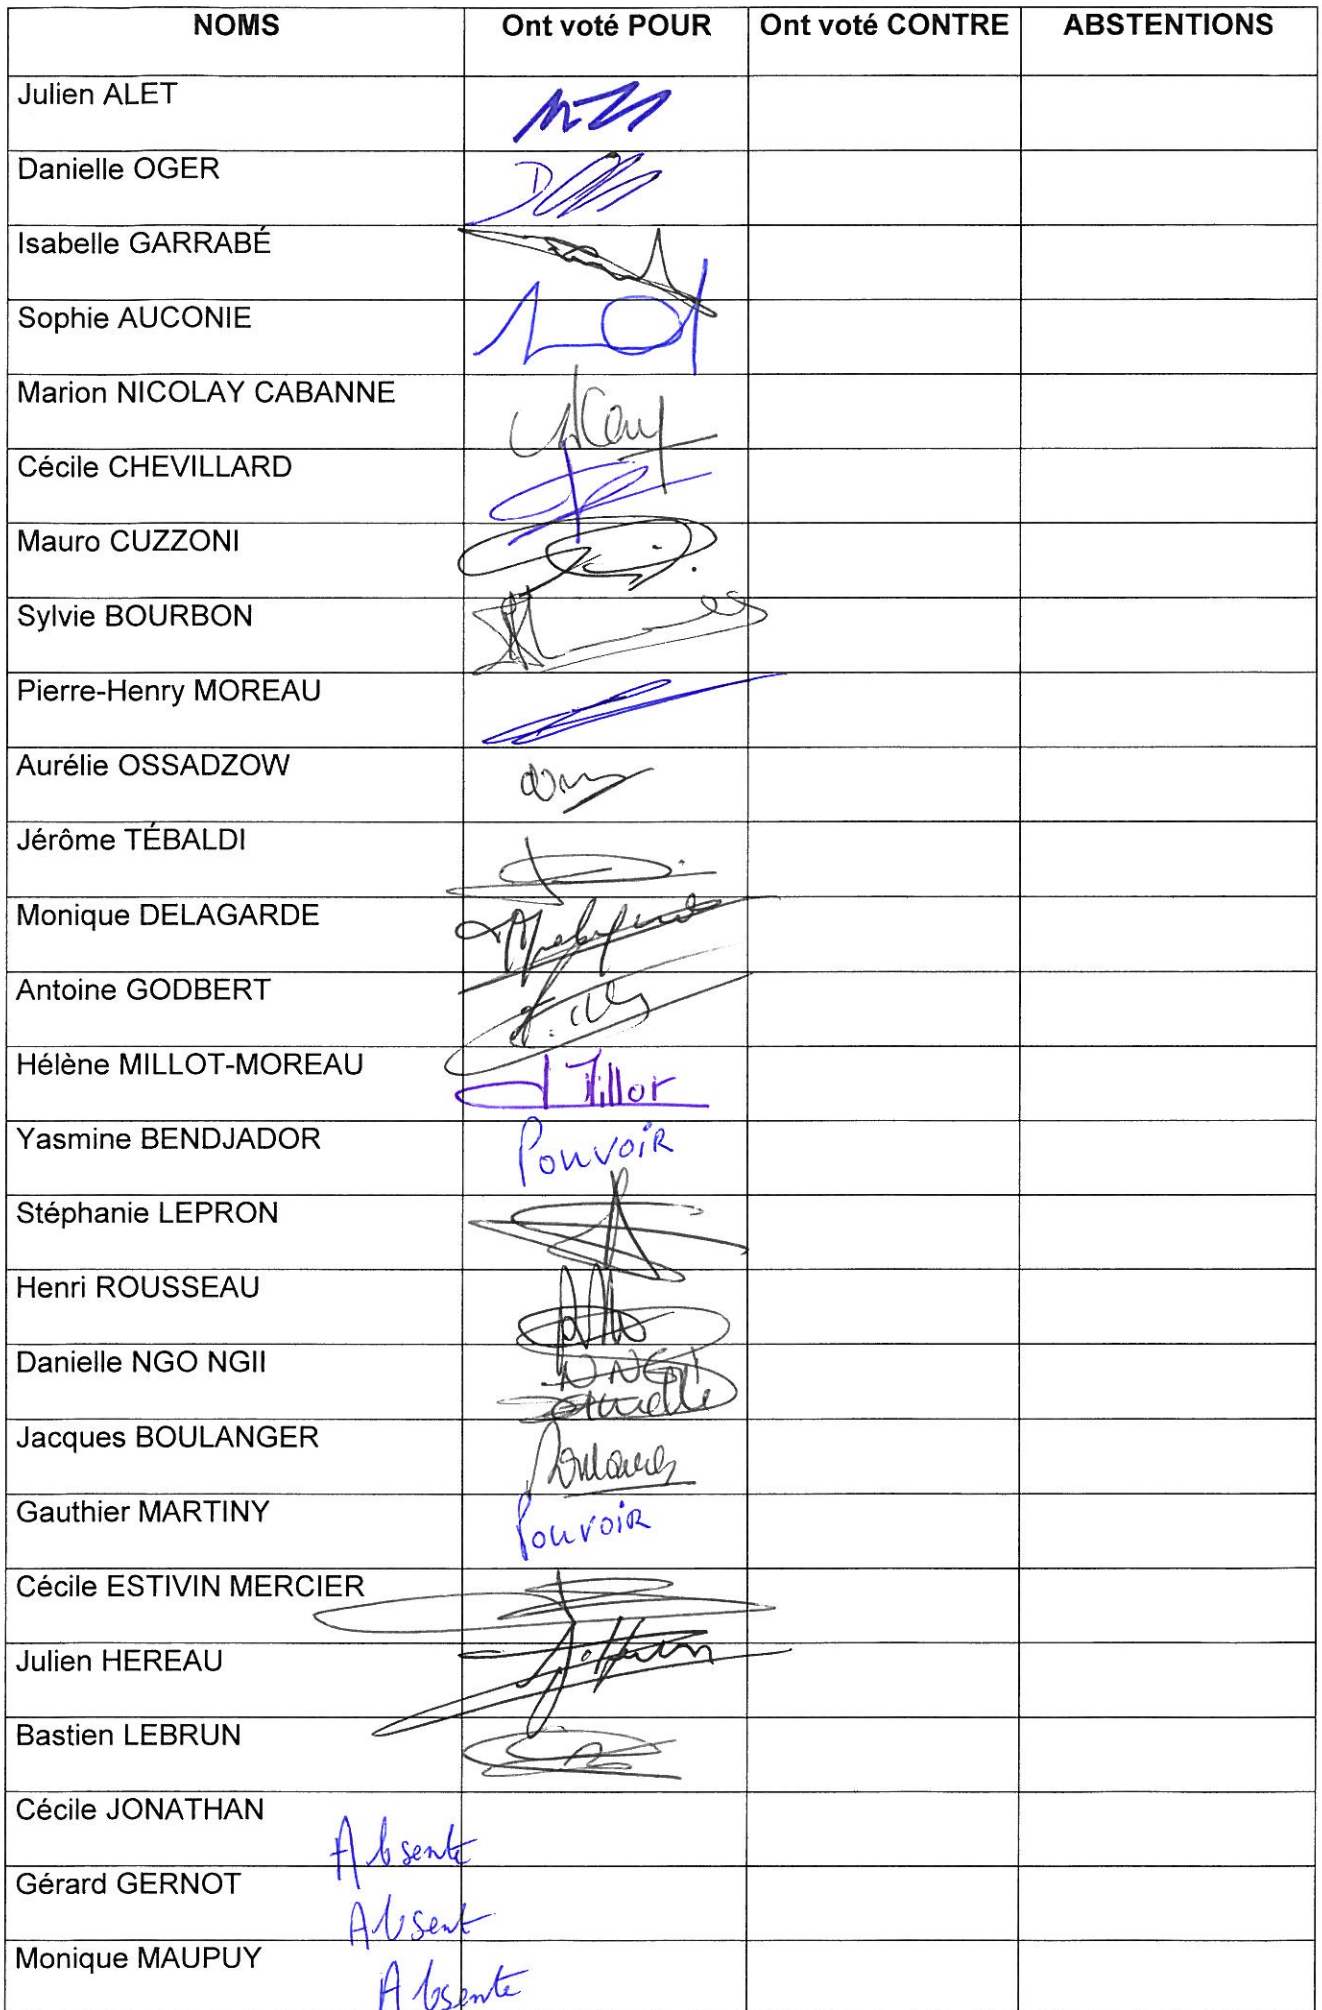 NOMS Ont voté POUR Ont voté CONTRE ABSTENTIONS
Julien ALET
Danielle OGER
Isabelle GARRABÉ
Sophie AUCONIE
Marion NICOLAY CABANNE
Cécile CHEVILLARD
Mauro CUZZONI
Sylvie BOURBON
Pierre-Henry MOREAU
Aurélie OSSADZOW
Jérôme TÉBALDI
Monique DELAGARDE
Antoine GODBERT
Hélène MILLOT-MOREAU Millot
Yasmine BENDJADOR Pouvoir
Stéphanie LEPRON
Henri ROUSSEAU
Danielle NGO NGII
Jacques BOULANGER
Gauthier MARTINY Pouvoir
Cécile ESTIVIN MERCIER
Julien HEREAU
Bastien LEBRUN
Cécile JONATHAN Absente
Gérard GERNOT Absent
Monique MAUPUY Absente